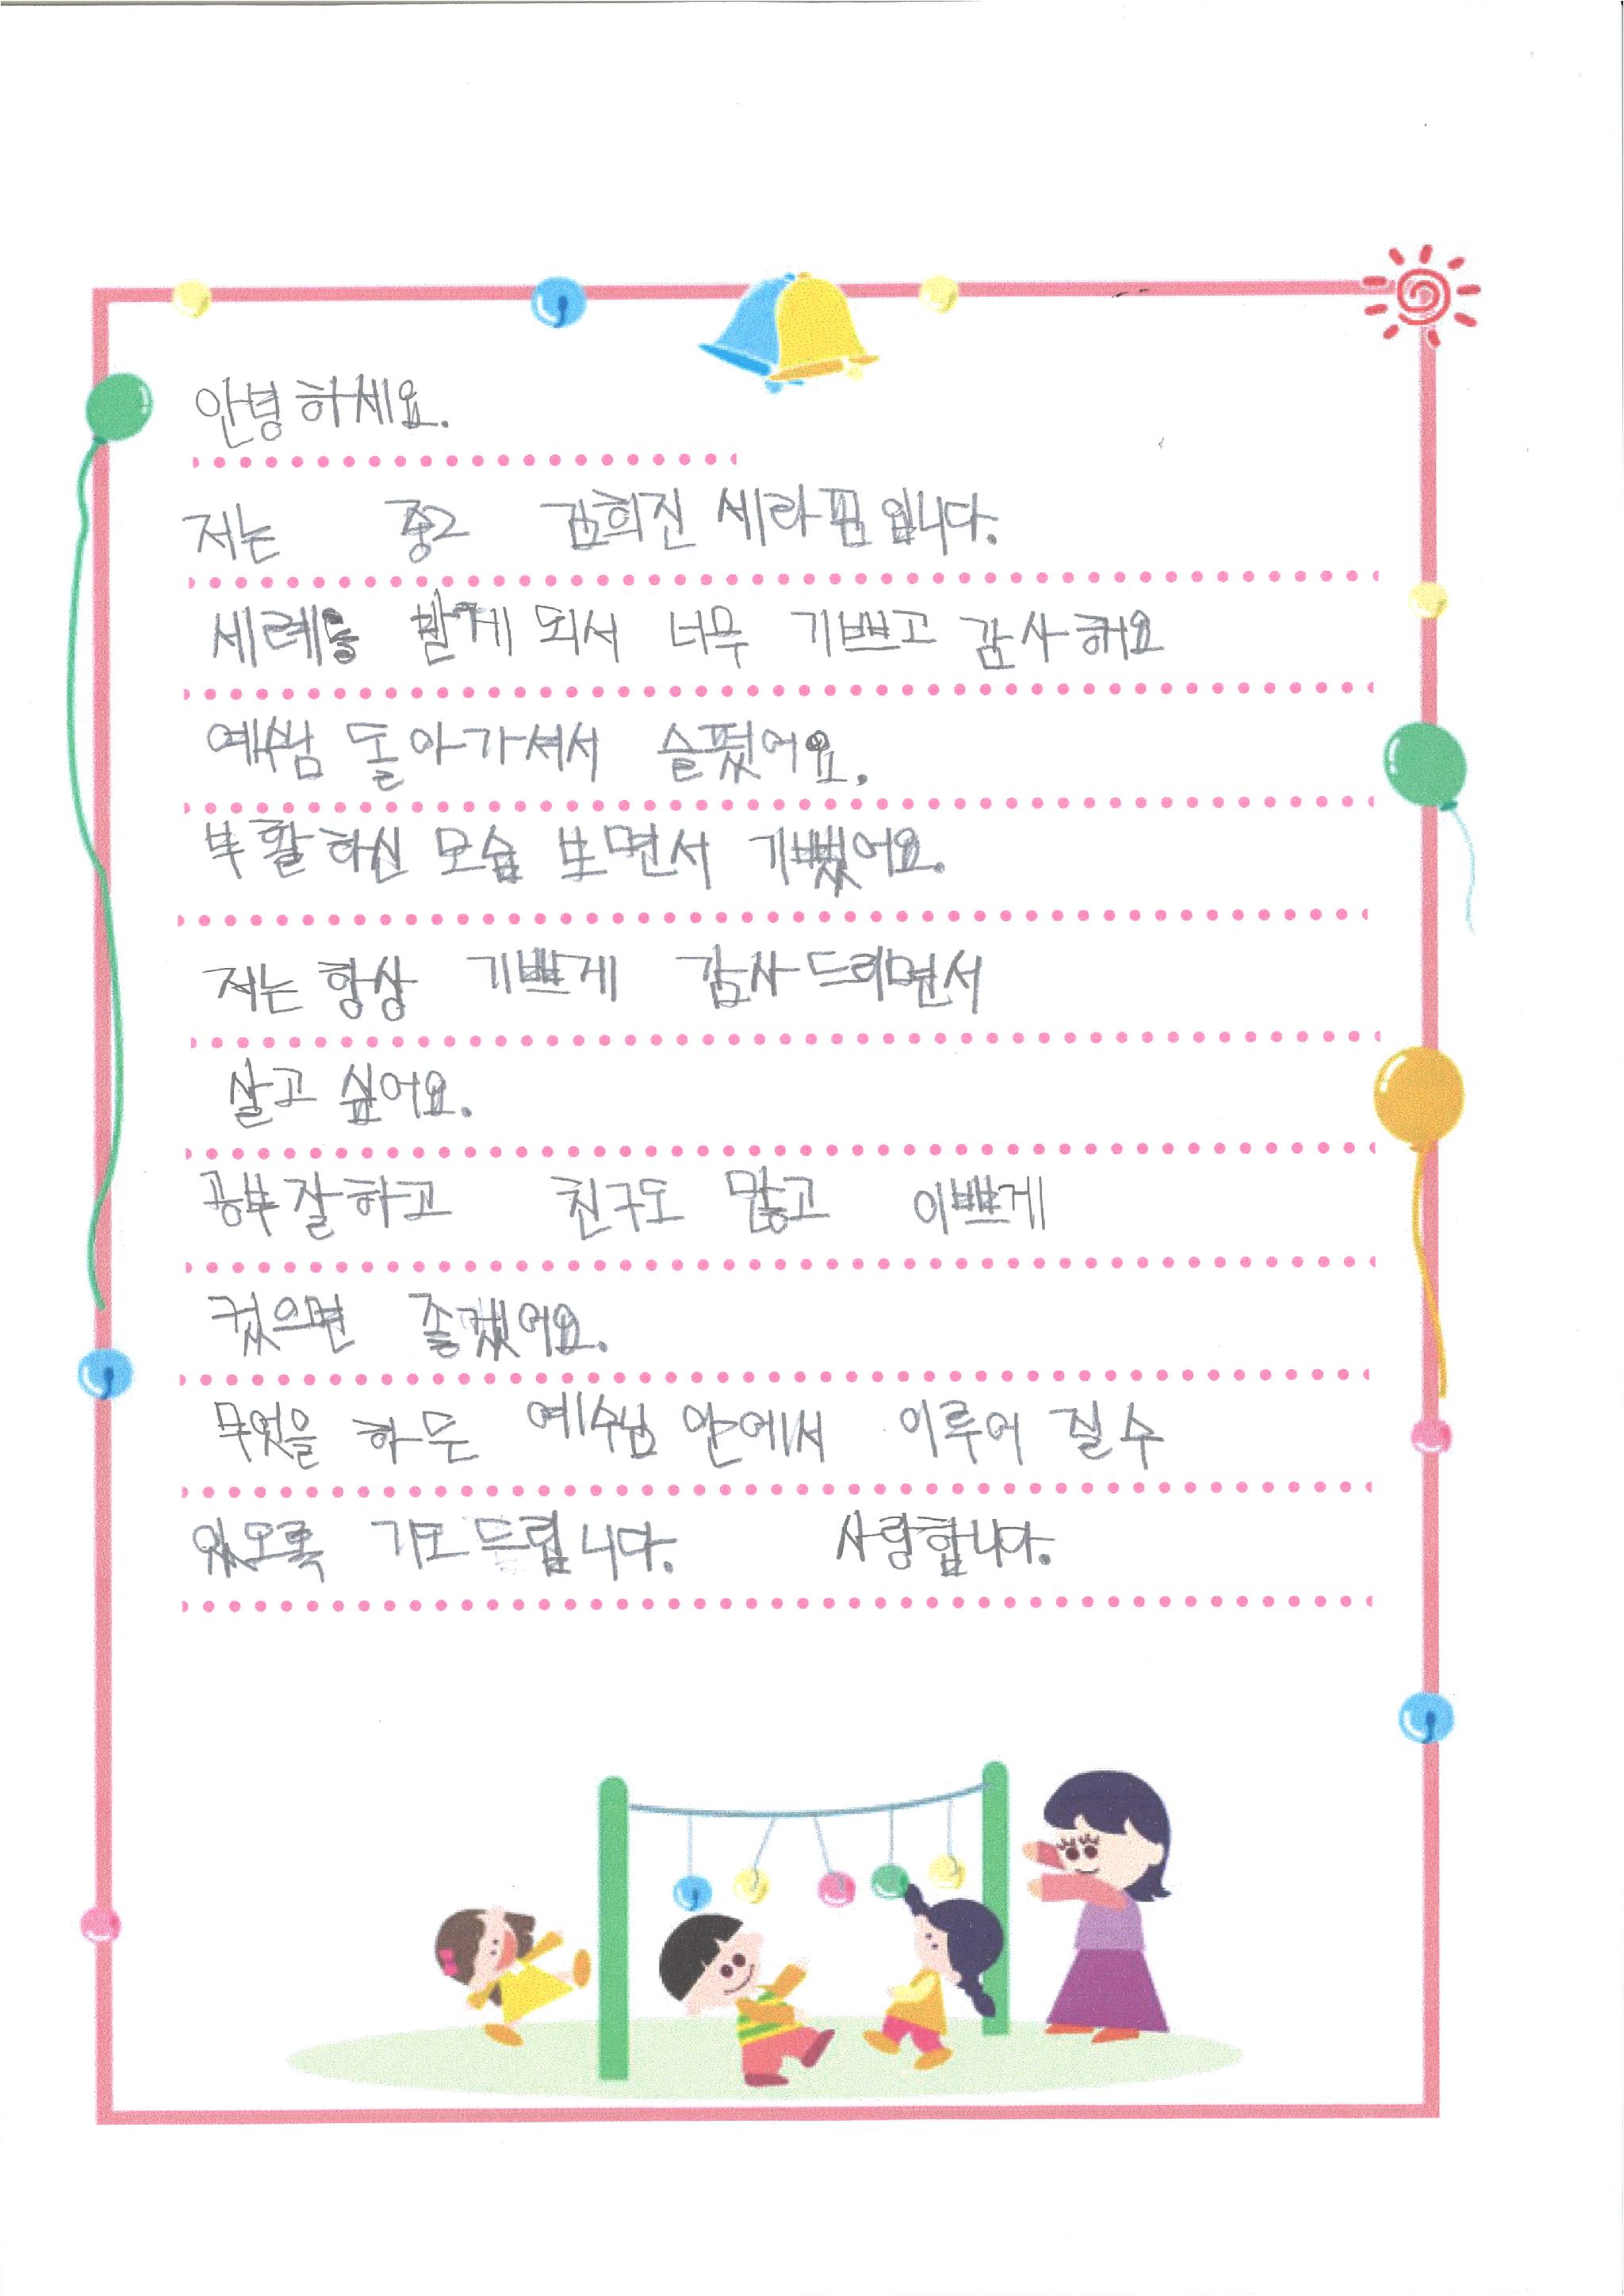 안녕하세요.
저는 중2 김희진 세라핌입니다.
세례를 받게 되서 너무 기쁘고 감사해요
예수님 돌아가셔서 슬펐어요.
부활하신 모습 보면서 기뻤어요.
저는 항상 기쁘게 감사드리면서
살고 싶어요.
공부잘하고 친구도 많고 이쁘게
컸으면 좋겠어요.
무엇을 하든 예수님 안에서 이루어 질수
있오록 기도드립니다. 사랑합니다.